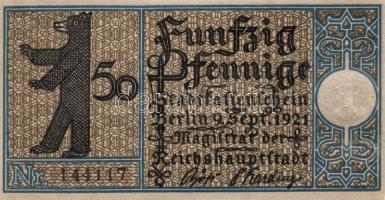 Funfzig
50 Pfennige
Stadtkassenschein
Berlin 9. Sept. 1921
Magistrat der
Reichshauptstadt
Nr. 144117